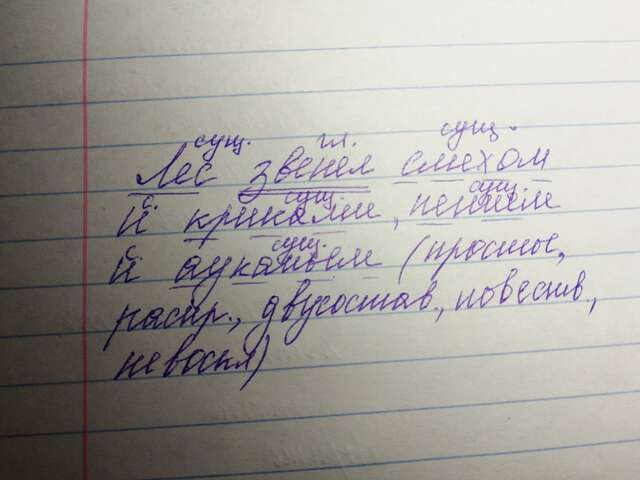 сущ. гл. сущ.
Лес звенел смехом
с. сущ. сущ.
и криками, пеньем
с сущ.
и ауканьем (простое,
распр., двусостав., повеств.,
невоскл)